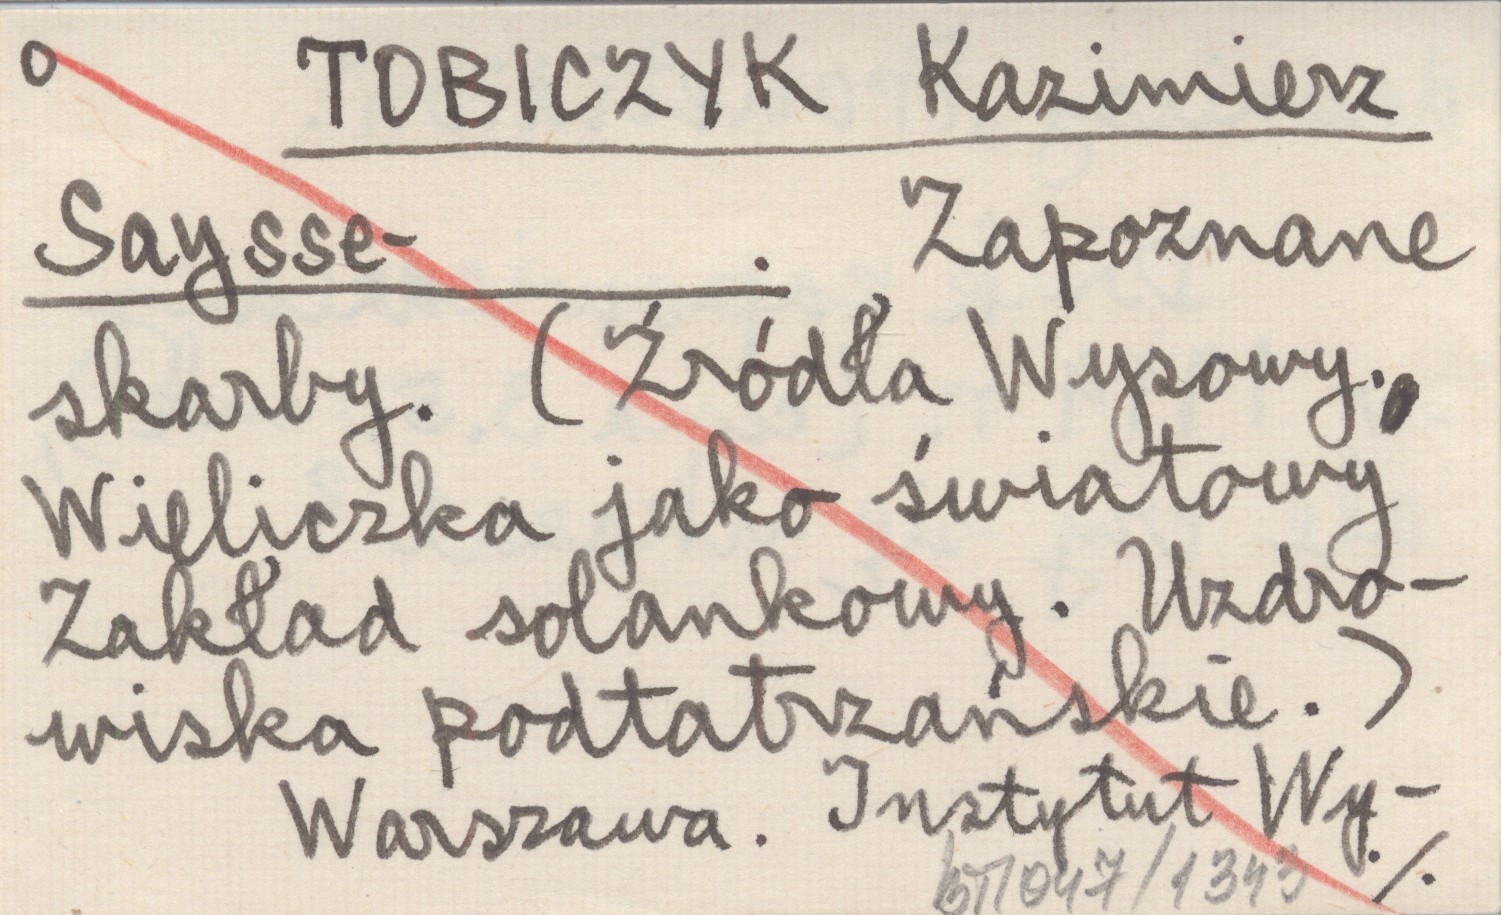 o TOBICZYK Kazimierz
Saysse- . Zapoznane
skarby. (Źródła Wysowy.
Więliczka jako światowy
Zakład solankowy. Uzdro-
wiska podtatrzańskie.)
Warszawa. Instytut Wy-
/1343 ./.